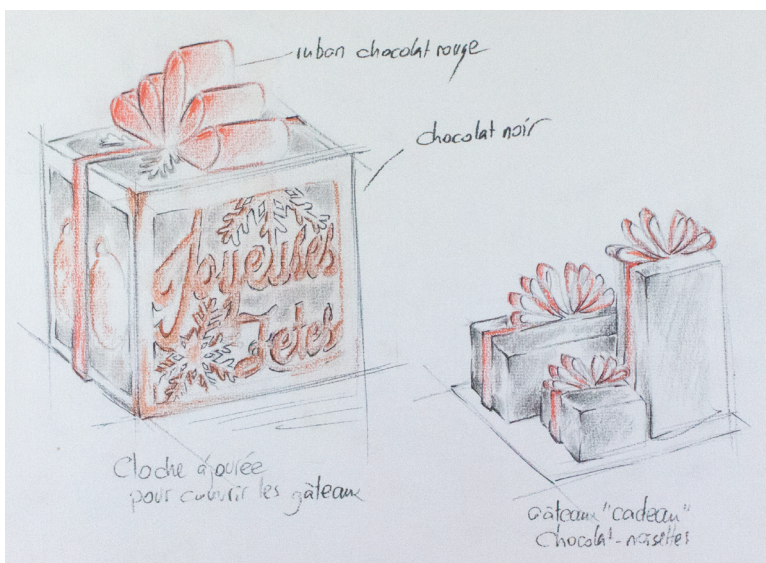 ruban chocolat rouge
chocolat noir
Joyeuses
Fetes
Cloche ajourée
pour couvrir les gâteaux
Gâteaux "cadeau"
Chocolat-noisettes